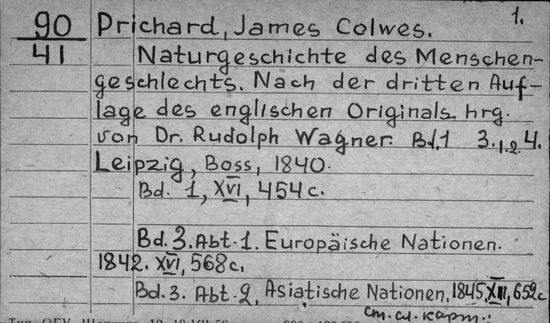 90 Prichard, James Colwes. 1.
41 Naturgeschichte des Menschen-
geschlechts. Nach der dritten Auf-
lage des englischen Originals hrg.
von Dr. Rudolph Wagner. Bd.1 3.1.2 4.
Leipzig, Boss, 1840.
Bd. 1, XVI, 454 c.
Bd. 3. Abt. 1. Europäische Nationen.
1842. XVI, 568 c,
Bd. 3. Abt. 2, Asiatische Nationen, 1845, XIII, 652 c
см. сл. карт.